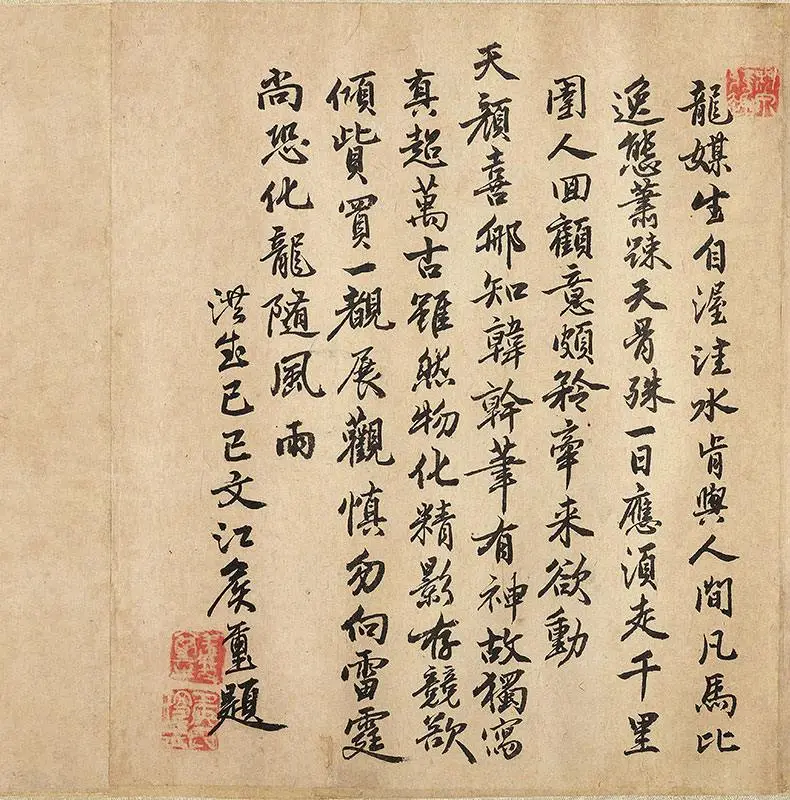 龍媒生自渥洼水肯與人間凡馬比
逸態蕭踈天骨殊一日應須走千里
圉人回顧意頗矜牽来欲動
天顏喜那知韓幹筆有神故獨寫
真超萬古雖然物化精影存競欲
傾貲買一覩展觀慎勿向雷霆
尚恐化龍隨風雨
洪武己巳文江侯重題